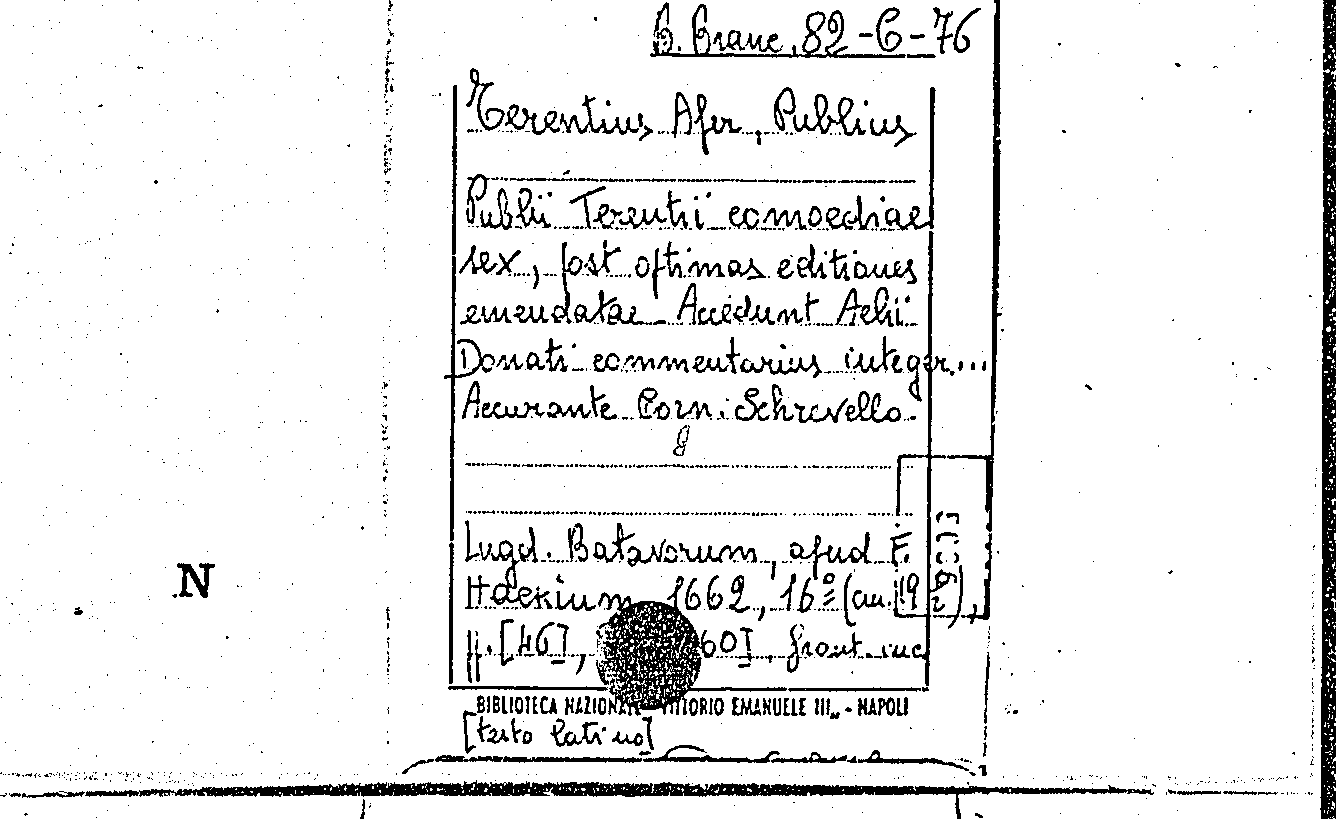 B. Branc. 82-C-76
Terentius Afer, Publius
Publii Terentii comoediae
sex, post optimas editiones
emendatae. Accedunt Aelii
Donati commentarius integer...
Accurante Corn. Schrevello.
Lugd. Batavorum, apud F.
Hackium, 1662, 16º (cm. 19
pp. [46], 60], front. inc.
N
BIBLIOTECA NAZIONALE VITTORIO EMANUELE III„ - NAPOLI
[testo latino]